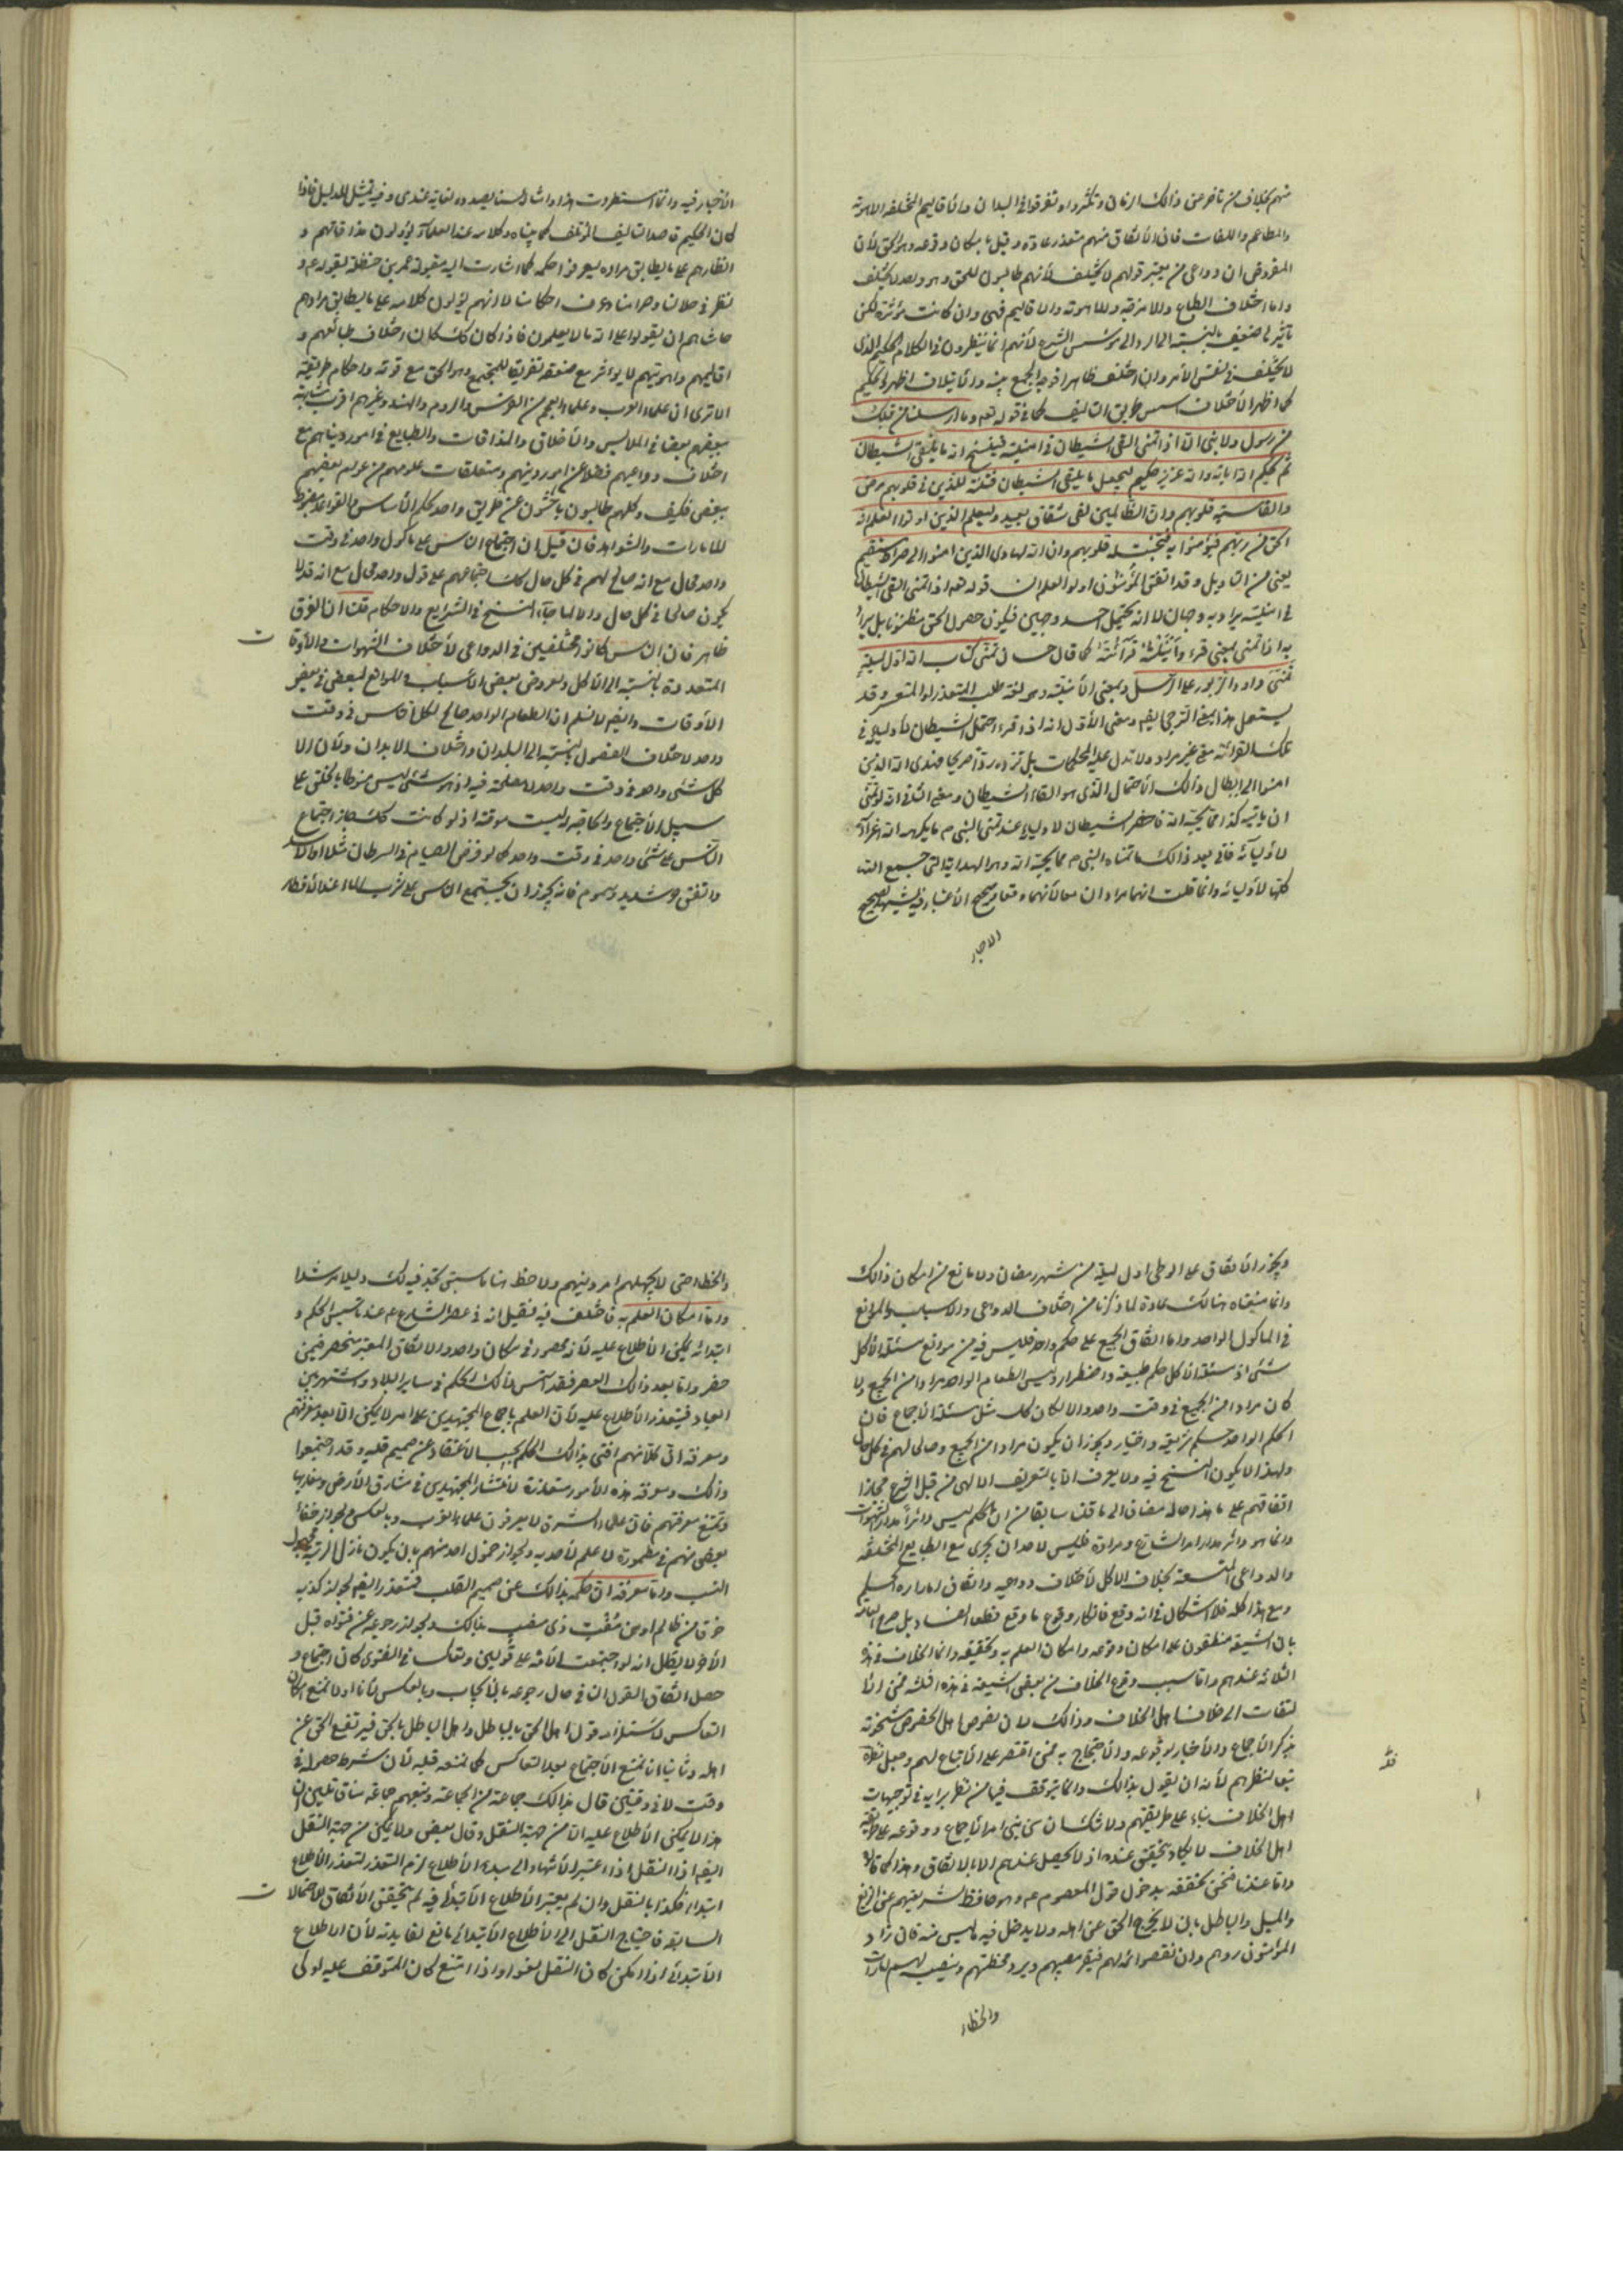 منهم بخلاف من تأخر عن ذلك الزمان وتكثروا وتفرقوا في البلدان والأقاليم المختلفة الاهوية
والمطاعم واللغات فان الأتفاق منهم متعذر عادة وقيل بامكان وقوعه وهو الحق لأن
المفروض ان دواعي من يعتبر قولهم لا تختلف لأنهم طالبون للحق وهو واحد لا يختلف
واما اختلاف الطباع والامزجة والاهوية والاقاليم فهي وان كانت مؤثرة لكن
تأثيرها ضعيف بالنسبة الى المؤسس الشرع لأنهم انما ينظرون في الكلام الحكيم الذي
لا يختلف في نفس الأمر وان اختلف ظاهرا فوجه الجمع بينه والأيتلاف اظهره الحكيم
كما اظهر الأختلاف اسس طريق التأليف كما في قوله تعم وما ارسلنا من قبلك
من رسول ولا نبي الا اذا تمنى القى الشيطان في امنيته فينسخ الله ما يلقي الشيطان
ثم يحكم الله اياته والله عزيز حكيم ليجعل ما يلقي الشيطان فتنة للذين في قلوبهم مرض
والقاسية قلوبهم وان الظالمين لفي شقاق بعيد وليعلم الذين اوتوا العلم انه
الحق من ربهم فيؤمنوا به فتخبت له قلوبهم وان الله لهادي الذين امنوا الى صراط مستقيم
يعني من التأويل وقد اتفق المؤسسون اولوا العلم ان قوله تعم اذا تمنى القى الشيطان
في امنيته يراد به وجهان لا انه يحتمل احد وجهين فيكون حصول الحق مظنونا بل يراد
به اذا تمنى بمعنى قرء وأمنيته قرآئته كما قال حسان تمنى كتاب الله اول ليلة
تمنى داود الزبور على الرسل وبمعنى الأمنية وهو لغة طلب المتعذر او المتعسر وقد
يستعمل هذا بمعنى الترجي ايضا ومعنى الأول انه اذا قرء احتمل الشيطان لأوليائه في
تلك القرائة معنى غير مراد ولا تدل عليه المحكمات بل ترده ردا صريحا فهدى الله الذين
امنوا الى ابطال ذلك الأحتمال الذي هو القاء الشيطان ومعنى الثاني انه لو تمنى
ان يأتيه كذا مما يحبه الله فاخطر الشيطان لأوليائه عند تمني النبي ص ما يكرهه الله اغراء
لأوليائه فاتى بعد ذلك ما تمناه النبي ص مما يحبه الله وهو الهداية التي جميع
كلها لأوليائه وانما قلت انهما مرادان معا لأنهما وقعا في صحيح الأخبار
الاخبار
الأخبار فيه وانما استطردت هذا وان لسنا بصدده لغاية عندي وفيه تمثيل للدليل فاذا
كان الحكيم قاصدا للتأليف المؤتلف كما بيناه وكلامه عند العلماء يؤولون مذاقاتهم و
انظارهم على ما يطابق مراده ليعرفوا حكمه كما اشارت اليه مقبولة عمر بن حنظلة بقوله ع و
نظر في حلالنا وحرامنا وعرف احكامنا لا انهم يؤولون كلامه على ما يطابق مرادهم
حاشاهم ان يقولوا على الله ما لا يعلمون فاذا كان كك كان اختلاف طبائعهم و
اقاليمهم واهويتهم لا يؤثر مع ضعفه تفريقا للمجتمع وهو الحق مع قوته واحكام طريقته
الا ترى ان علماء العرب وعلماء العجم من الفرس والروم والهند وغيرهم اقرب مشابهة
بعضهم بعضا في الملابس والأخلاق والمذاقات والطبايع في امور دنياهم مع
اختلاف دواعيهم فضلا عن امور دينهم ومتعلقات علومهم من علوم بعضهم
ببعض فكيف وكلهم طالبون باحثون عن طريق واحد محكم الأساس والقواعد مضبوط
للامارات والشواهد فان قيل ان اجتماع الناس على مأكول واحد في وقت
واحد محال مع انه صالح لهم في كل حال كك اجتماعهم على قول واحد محال مع انه قد لا
يكون صالحا في كل حال والا لما جاء النسخ في الشرايع والاحكام قلنا ان الفرق
ظاهر فان الناس كانوا مختلفين في الدواعي لأختلاف الشهوات والأوقات
المتعددة بالنسبة الى الأكل ولعروض بعض الأسباب والموانع لبعض في بعض
الأوقات وايضا لا نسلم ان الطعام الواحد صالح لكل الناس في وقت
واحد لاختلاف الفصول بالنسبة الى البلدان واختلاف الابدان ولأن الا
كل شيء واحد في وقت واحد لا مصلحة فيه اذ هو شيء ليس منوطا بالخلق على
سبيل الأجتماع والحاجة ليست موقتة اذ لو كانت كك جاز اجتماع
الناس على شيء واحد في وقت واحد كما لو فرض الصيام في السرطان مثلا او الأسد
واتفق حر شديد وسموم فانه يجوز ان يجتمع الناس على شرب الماء عند الأفطار
ويجوز الأتفاق على الوطي اول ليلة من شهر رمضان ولا مانع من امكان ذلك
وانما منعناه هنالك عادة لما ذكرنا من اختلاف الدواعي والاسباب والموانع
في المأكول الواحد واما اتفاق الجميع على حكم واحد فليس فيه من موانع مسئلة الأكل
شيء اذ مسئلة الأكل حكم طبيعة واضطرار وليس الطعام الواحد مرادا من الجميع ولا
كان مرادا من الجميع في وقت واحد والا لكان كك مثل مسئلة الأجماع فان
الحكم الواحد حكم شريعة واختيار ويجوز ان يكون مرادا من الجميع وصالحا لهم في كل حال
ولهذا لا يكون النسخ فيه ولا يعرف الا بالتعريف الالهي من قبل الشرع فجاز
اتفاقهم على ما هذا حاله مضافا الى ما قلت سابقا من ان الحكم ليس دائرا مدار الشهوات
وانما هو دائر مدار امر الشارع ومراده فليس لأحد ان يجري مع الطبايع المختلفة
والدواعي المتسعة بخلاف الاكل لأختلاف دواعيه واتفاق امارات الحكم
ومع هذا كله فلا اشكال في انه وقع فانكار وقوع ما وقع قطعا
بان الشيعة متفقون على امكان وقوعه وامكان العلم به وتحقيقه وانما الخلاف في هذه
الثلاثة عندهم واما سبب وقوع الخلاف من بعض الشيعة في هذه الثلثة فمن الأ
لتفات الى خلاف اهل الخلاف وذلك لان بعض اهل الخصوص
يذكر الأجماع والأخبار لوقوعه والأحتجاج به فمن اقتصر على الأتباع لهم وجعل نظره
تبعا لنظرهم لأبد ان يقول بذلك وانما يتوقف فيها من نظر برايه في توجيهات
اهل الخلاف بناء على طريقتهم ولا شك ان من بنى امر الأجماع ووقوعه على طريقة
اهل الخلاف لا يكاد يتحقق عنده اذ لا يحصل عندهم الا بالاتفاق وهذا كما قالوا
واما عندنا فنحن نحققه بدخول قول المعصوم ع وهو حافظ لشريعتهم عن الزيغ
والميل والباطل بان لا يخرج الحق عن اهله ولا يدخل فيه ما ليس منه فان زاد
المؤمنون ردهم وان نقصوا اتمه لهم فيقر مصيبهم ويرد مخطئهم وينصب لهم امارات
والخطاء
والخطاء حتى لا يجهلهم امر دينهم ولاحظ هنا ما سبق تجد فيه لك دليلا مرشدا
واما امكان العلم به فاختلف فيه فقيل انه في عصر الشارع ع عند تأسيس الحكم و
ابتدائه يمكن الأطلاع عليه لأنه محصور في مكان واحد والاتفاق المعتبر منحصر فيمن
حضر واما بعد ذلك العصر فقد انتشر ذلك الحكم في ساير البلاد واشتهر بين
العباد فيتعذر الأطلاع عليه لأن العلم باجماع المجتهدين على امر لا يمكن الا بعد معرفتهم
ومعرفة ان كلا منهم افتى بذلك الحكم بحسب الأعتقاد عن صميم قلبه وقد اجتمعوا
وذلك ومعرفة هذه الأمور متعذرة لأنتشار المجتهدين في مشارق الأرض ومغاربها
وتمتنع معرفتهم فان علماء الشرق لا يعرفون علماء الغرب وبالعكس ولجواز خفاء
بعض منهم في مطمورة لا علم لأحد به ولجواز خمول احد منهم بان يكون نازل الرتبة مجهول
النسب واما معرفة ان حكمه بذلك عن صميم القلب فتعذر ايضا لجواز كذبه
خوفا من ظالم او من مفت ذي منصب بذلك ولجواز رجوعه عن فتواه قبل
الأخر لا يقال انه لو اجتمعت الأمة على قولين وتعاكسا في الفتوى كان اجتماع و
حصل اتفاق القول الثاني حال رجوعه بالأيجاب وبالعكس لأنا اولا نمنع امكان
التعاكس لأستلزامه قول اهل الحق بالباطل واهل الباطل بالحق فيرتفع الحق عن
اهله وثانيا انا نمنع الأجتماع بعد التعاكس كما نمنعه قبله لأن شرط حصوله في
وقت لا في وقتين قال بذلك جماعة من الجماعة وتبعهم جماعة
هذا لا يمكن الأطلاع عليه الا من جهة النقل وقال بعض ولا يمكن من جهة النقل
ايضا اذ النقل اذا اعتبر الأنتهاء الى مبدء الأطلاع لزم التعذر لتعذر الأطلاع
ابتداء فكذا بالنقل وان لم يعتبر الأطلاع الأبتدائي فيه لم يتحقق الأتفاق للأحتمالات
السابقة فاحتياج النقل الى الأطلاع الأبتدائي مانع لفايدته لأن الأطلاع
الأبتدائي اذا امكن كان النقل لغوا واذا امتنع كان المتوقف عليه اولى